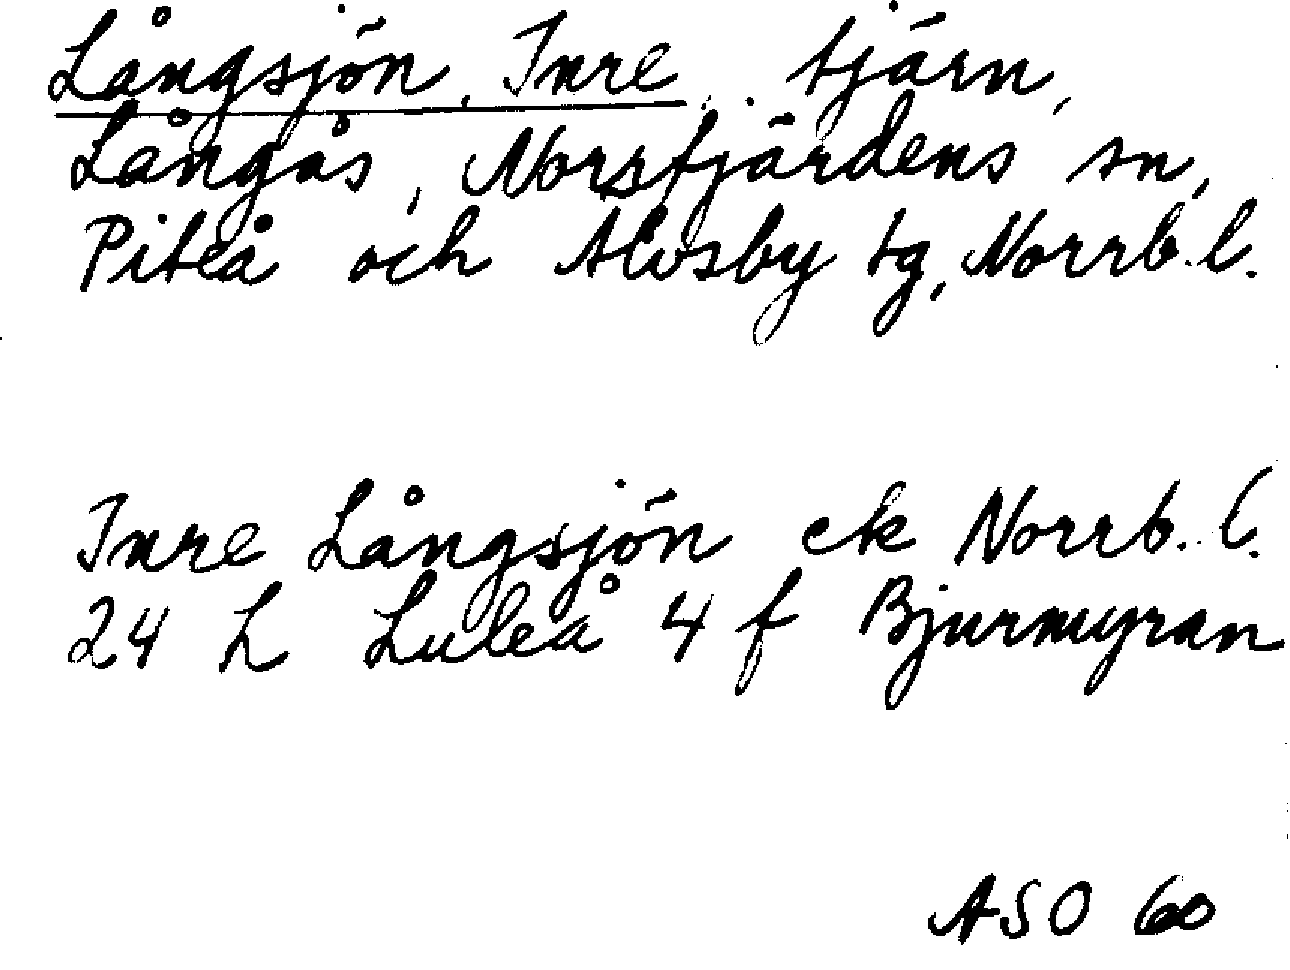 Långsjön, Inre, tjärn,
Långås, Norsfjärdens sn,
Piteå och Älvsby tg, Norrb. l.
Inre Långsjön ek Norrb. l.
24 L Luleå 4 f Bjurmyran
ASO 60